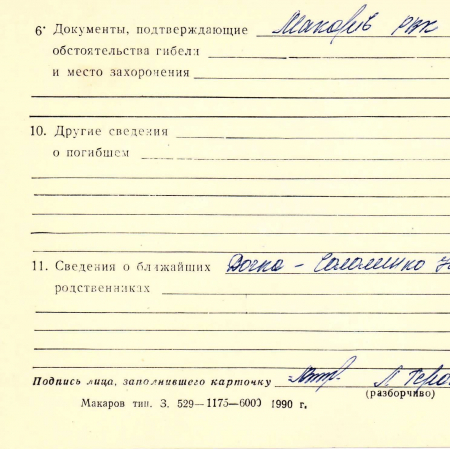 6. Документы, подтверждающие Макарів РВК
обстоятельства гибели
и место захоронения
10. Другие сведения
о погибшем
11. Сведения о ближайших Дочка – Соломенко
родственниках
Подпись лица, заполнившего карточку
(разборчиво)
Макаров тип. З. 529—1175—6000 1990 г.